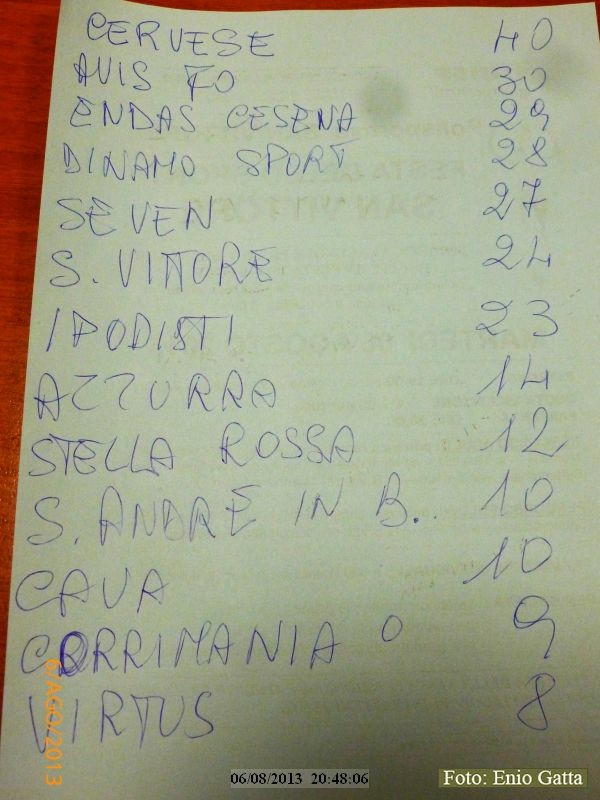 CERVESE 40
AVIS FO 30
ENDAS CESENA 29
DINAMO SPORT 28
SEVEN 27
S. VITTORE 24
IPODISTI 23
AZZURRA 14
STELLA ROSSA 12
S. ANDRE IN B.. 10
CAVA 10
CORRIMANIA O 9
VIRTUS 8
6/AGO/2013
06/08/2013 20:48:06
Foto: Enio Gatta